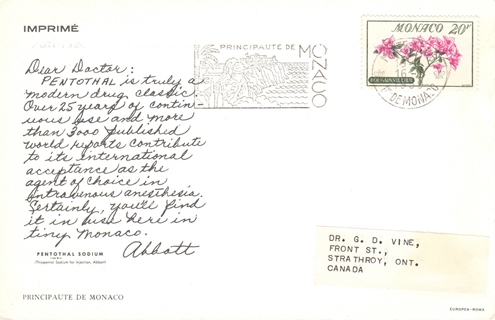 IMPRIMÉ
PRINCIPAUTE DE
MONACO
MONACO 20F
BOUGAINVILLÉE
DE MONACO
Dear Doctor:
PENTOTHAL is truly a
modern drug classic.
Over 25 years of contin-
uous use and more
than 3000 published
world reports contribute
to its international
acceptance as the
agent of choice in
intravenous anesthesia.
Certainly, you'll find
it in use here in
tiny Monaco.
Abbott
PENTOTHAL SODIUM
(Thiopental Sodium for Injection, Abbott)
DR. G. D. VINE,
FRONT ST.,
STRATHROY, ONT.
CANADA
PRINCIPAUTE DE MONACO
EUROPEA-ROMA